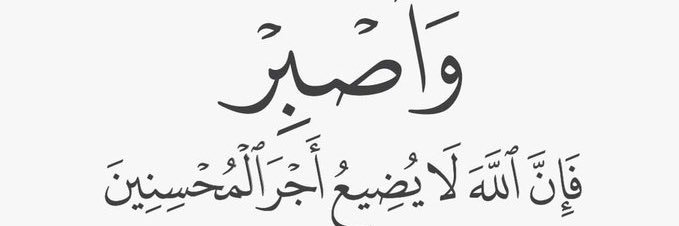 وَاصْبِرْ
فَإِنَّ ٱللَّهَ لَا يُضِيعُ أَجْرَ ٱلْمُحْسِنِينَ